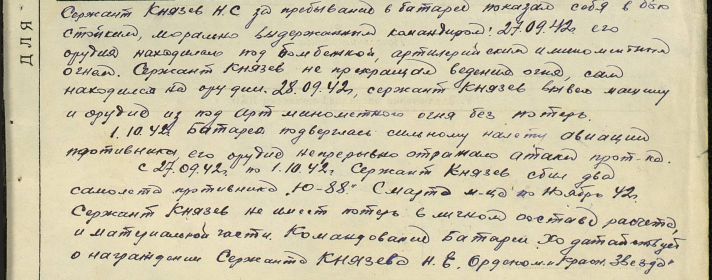 ДЛЯ
Сержант Князев Н.С за пребывание в батареи показал себя в бою
стойким, морально выдержанным командиром! 27.09.42г его
орудие находилось под бомбежкой, артилерийским и минометным
огнем. Сержант Князев не прекращал ведения огня, сам
находился на орудии. 28.09.42г, сержант Князев вывел машину
и орудие из под арт минометного огня без потерь.
1.10.42г Батарея подверглась сильному налету авиации
противника его орудие непрерывно отражало атаки прот-ка.
с 27.09.42г по 1.10.42г Сержант Князев сбил два
самолета противника „Ю-88" С марта м-ца по Ноябрь 42г
Сержант Князев не имеет потерь в личном составе расчета,
и материальной части. Командование Батареи ходатайствует
о награждении Сержанта КНЯЗЕВА Н. Орденом „Красн. Звезда"